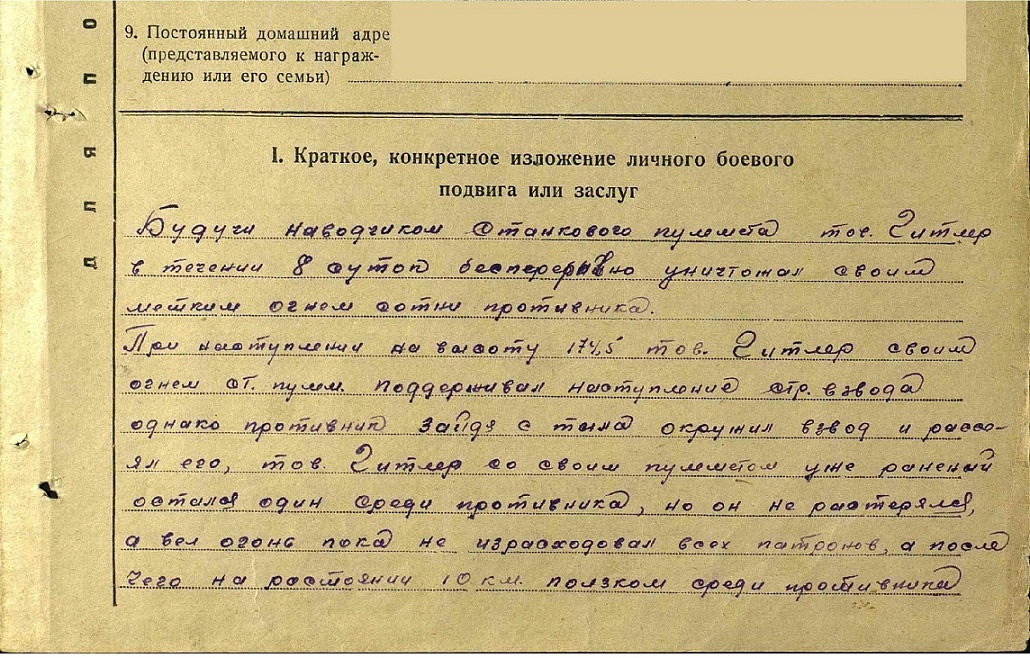 9. Постоянный домашний адре
(представляемого к награж-
дению или его семьи)
ДЛЯ ПО
I. Краткое, конкретное изложение личного боевого
подвига или заслуг
Будучи наводчиком станкового пулемета тов. Гитлер
в течении 8 суток бесперерывно уничтожал своим
метким огнем сотни противника.
При наступлении на высоту 174,5 тов. Гитлер своим
огнем ст. пулем. поддерживал наступление стр. взвода
однако противник зайдя с тыла окружил взвод и рассе-
ял его, тов. Гитлер со своим пулеметом уже раненый
остался один среди противника, но он не растерялся,
а вел огонь пока не израсходовал всех патронов, а после
чего на растоянии 10 км. ползком среди противника